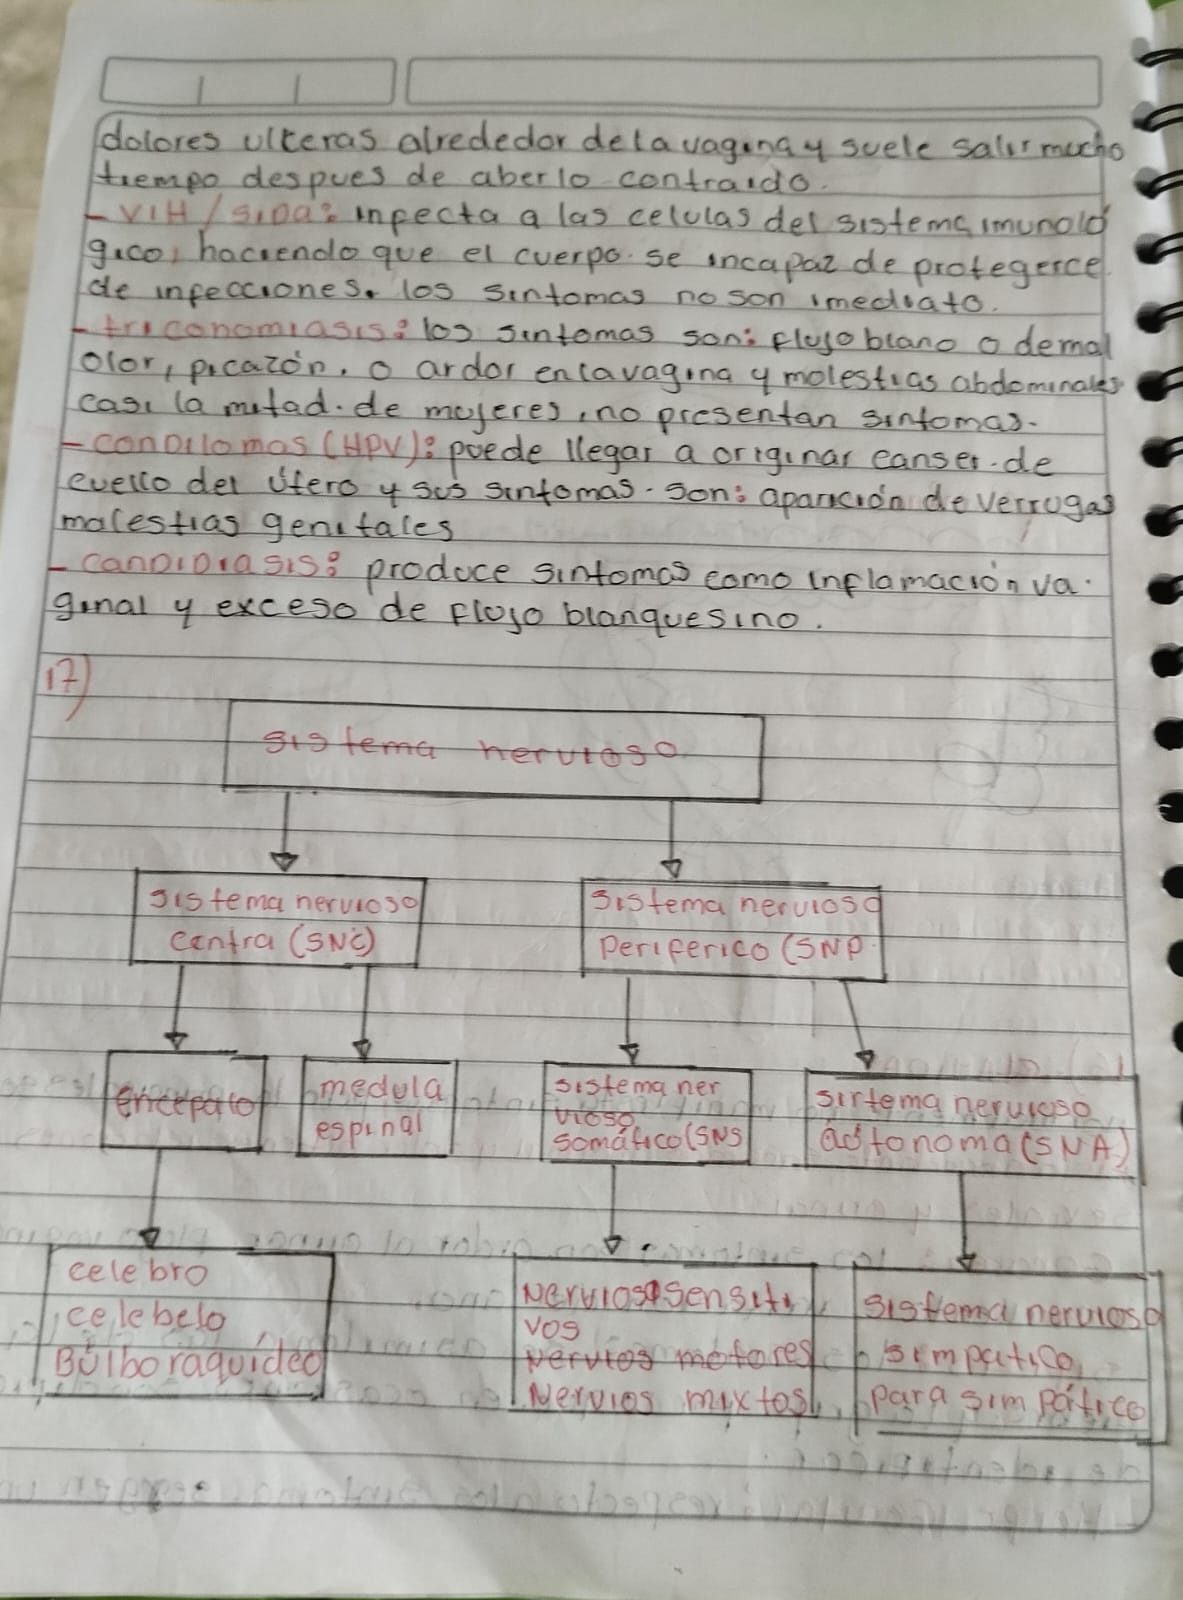 dolores ulceras alrededor de la vagina y suele salir mucho
tiempo despues de aberlo contraido.
- VIH/SIDA: infecta a las celulas del sistema imunoló
gico, haciendo que el cuerpo se incapaz de protegerce
de infecciones. los sintomas no son imediato.
- triconomiasis: los sintomas son: flujo blano o demal
olor, picazón, o ardor en la vagina y molestias abdominales
casi la mitad de mujeres, no presentan sintomas.
- condilomas (HPV): puede llegar a originar canser de
cuello del útero y sus sintomas son: aparición de verrugas
malestias genitales
- candidiasis: produce sintomas como inflamación va
ginal y exceso de flujo blanquesino.
17)
sistema nervioso
sistema nervioso
centra (SNC)
sistema nervioso
periferico (SNP
encepalo
medula
espinal
sistema ner
vioso
somático (SNS
sirtema nervioso
autonoma (SNA)
celebro
celebelo
Bulbo raquídeo
Nervioso Sensiti
vos
Nervios motores
Nervios mixtos
sistema nervioso
simpatico
para simpático